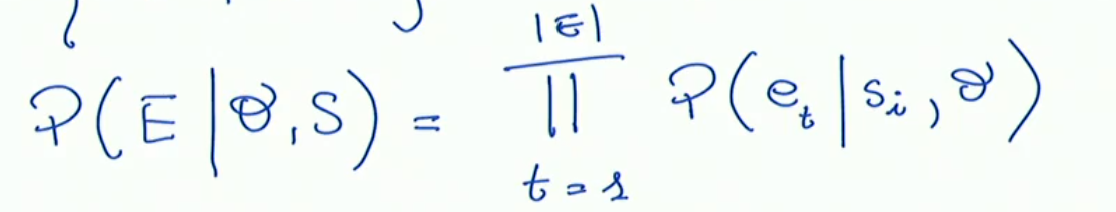 P(E|θ,S) = ∏_{t=1}^{|E|} P(e_t|s_i,θ)